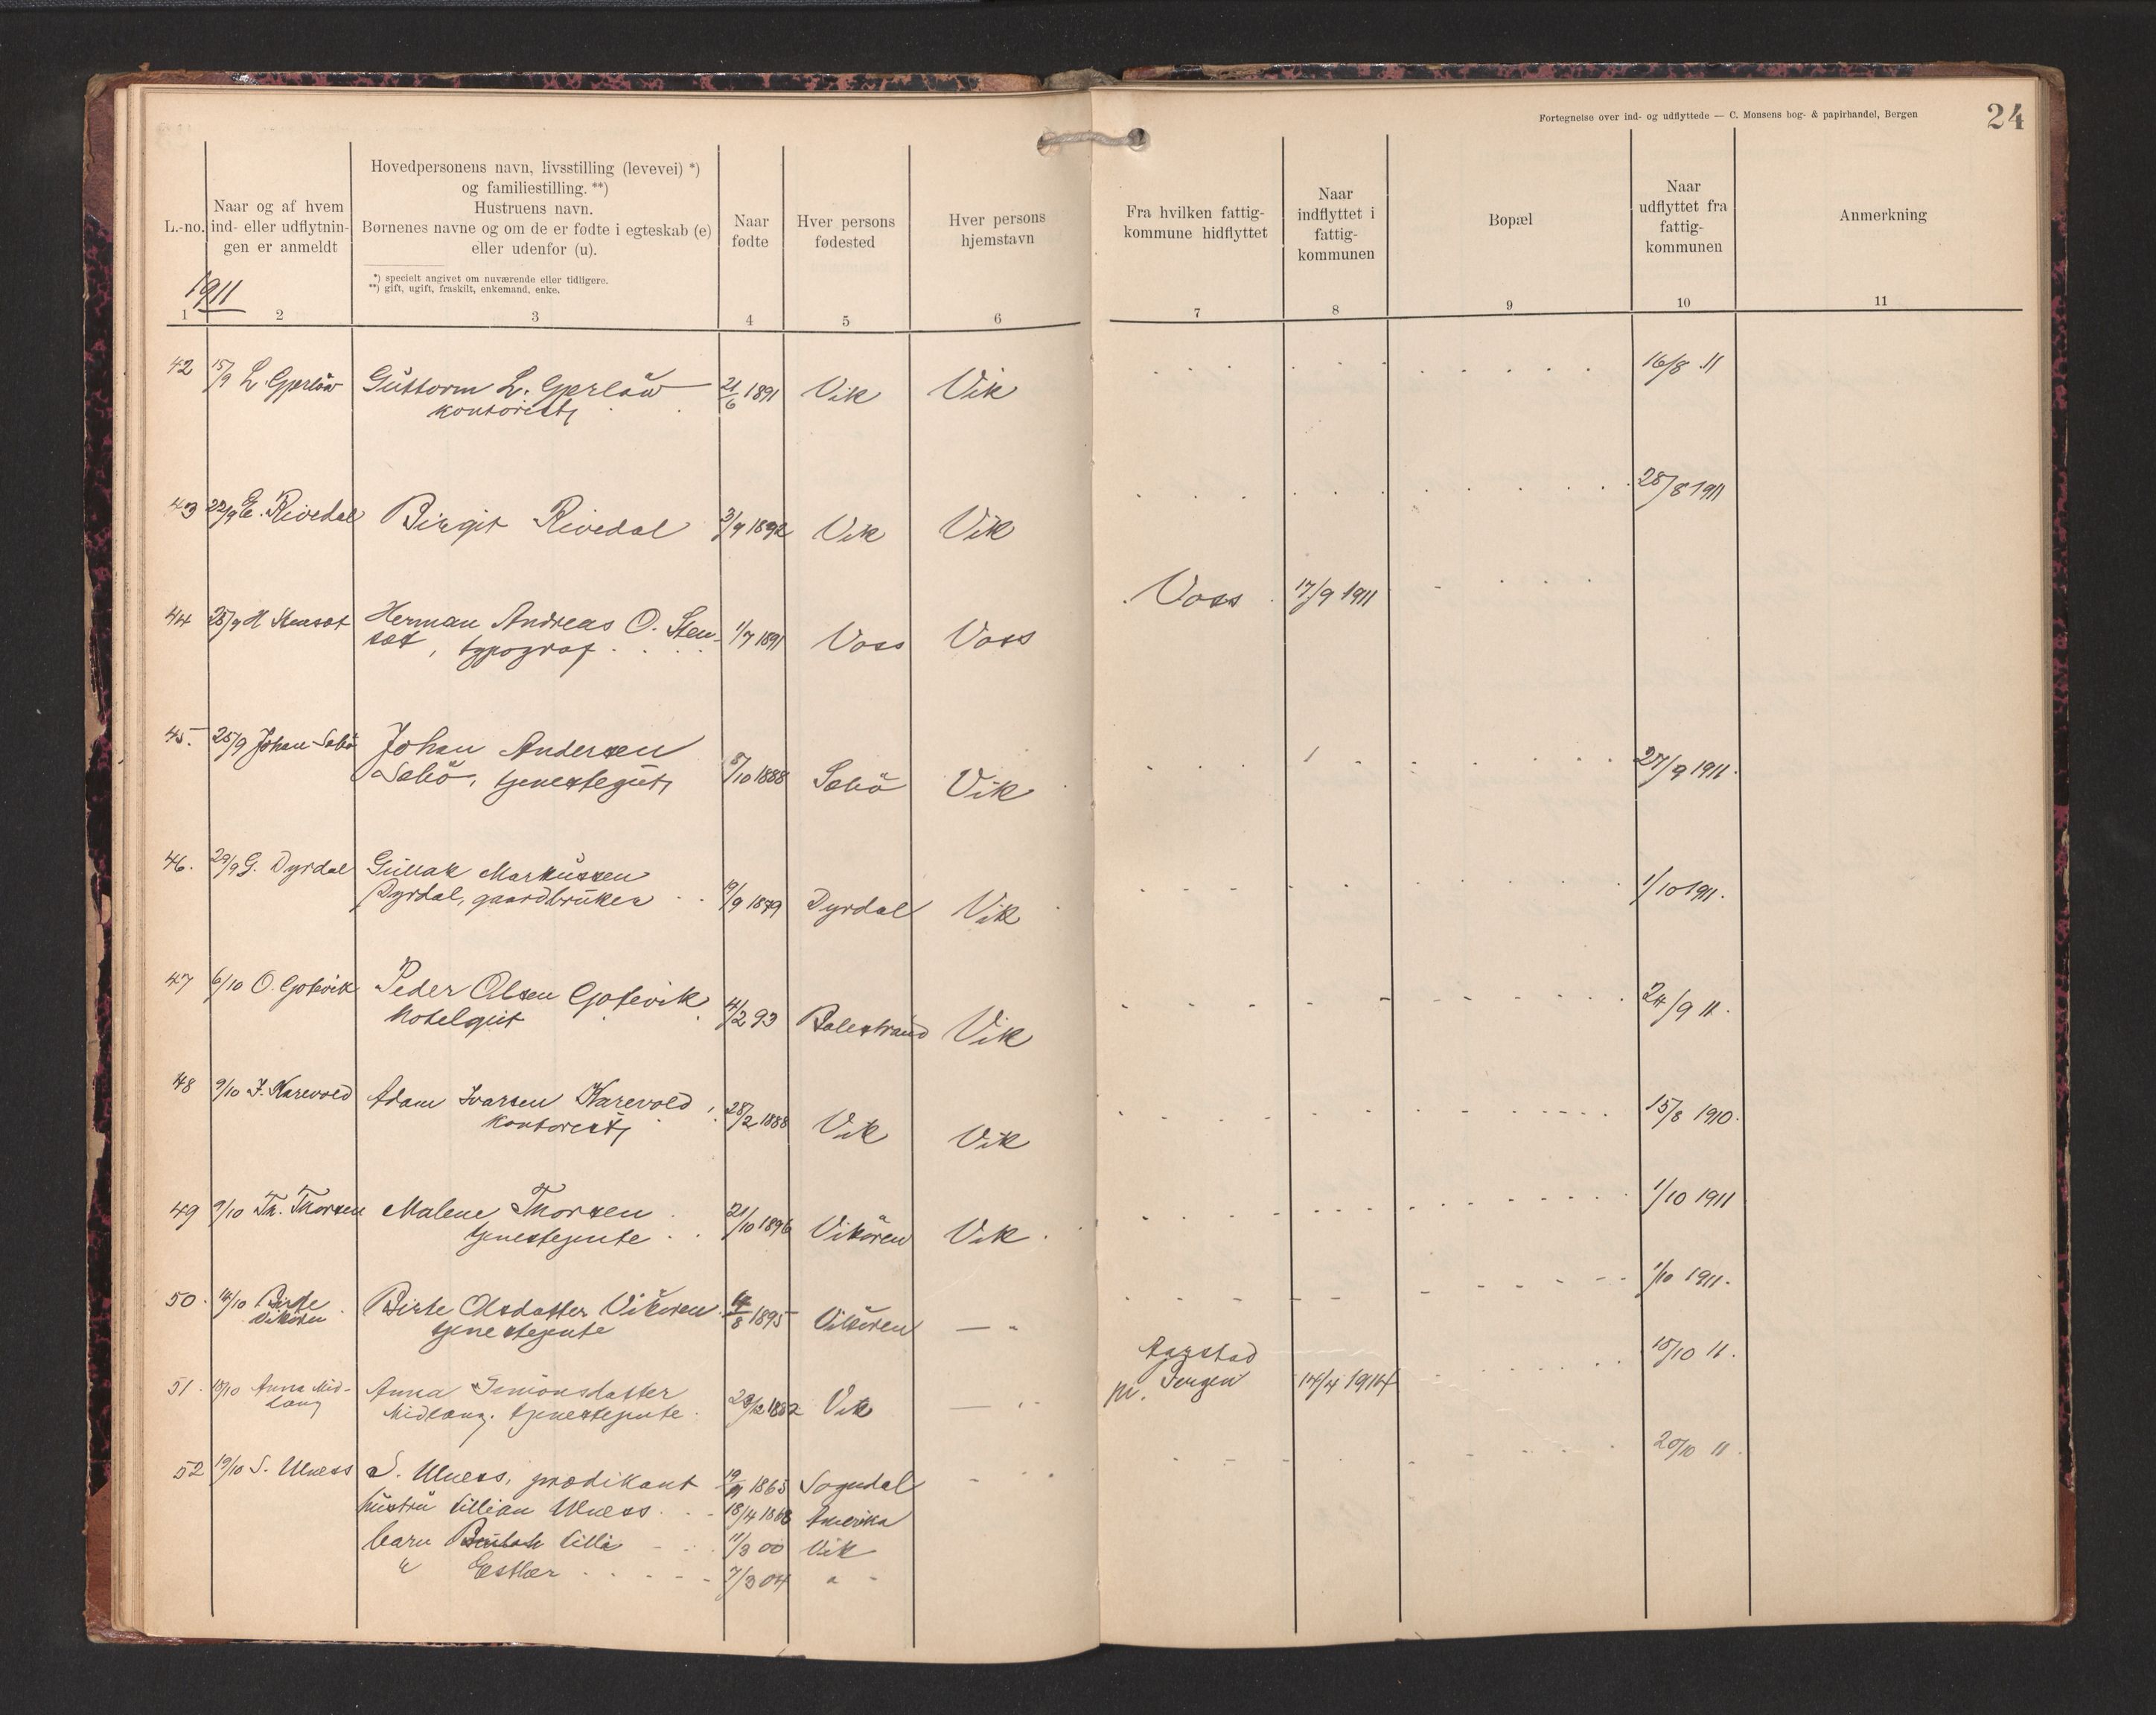 Fortegnelse over ind- og udflyttede — C. Monsens bog- & papirhandel, Bergen
24
L.-no.
Naar og af hvem
ind- eller udflytnin-
gen er anmeldt
Hovedpersonens navn, livsstilling (levevei) *)
og familiestilling. **)
Hustruens navn.
Børnenes navne og om de er fødte i egteskab (e)
eller udenfor (u).
*) specielt angivet om nuværende eller tidligere.
**) gift, ugift, fraskilt, enkemand, enke.
Naar
fødte
Hver persons
fødested
Hver persons
hjemstavn
Fra hvilken fattig-
kommune hidflyttet
Naar
indflyttet i
fattig-
kommunen
Bopæl
Naar
udflyttet fra
fattig-
kommunen
Anmerkning
1911
1 2 3 4 5 6 7 8 9 10 11
42 15/9 L. Gjerløw Guttorm L. Gjerløw 21/6 1891 Vik Vik 16/8 11
kontorist,
43 22/9 E. Rivedal Birgit Rivedal 3/9 1892 Vik Vik 28/8 1911
44 25/9 H Stensæt Herman Andreas O. Sten- 1/7 1891 Voss Voss Voss 17/9 1911
sæt, typograf
45. 25/9 Johan Sæbö Johan Andersen
Sæbö, tjenestegut, 8/10 1888 Sæbö Vik 27/9 1911.
46. 29/9 G. Dyrdal Gullak Markussen
Dyrdal, gaardbruker 19/9 1879 Dyrdal Vik 1/10 1911.
47 6/10 O. Gjotevik Peder Olsen Gjotevik 4/2 93 Balestrand Vik 24/9 11.
hotelgut
48 9/10 I. Karevold Adam Ivarsen Karevold 28/2 1888 Vik Vik 15/8 1910.
kontorist,
49 9/10 Th. Thorsen Malene Thorsen 21/10 1896 Vikören Vik 1/10 1911
tjenestejente
50. 14/10 Birte Birte Olsdatter Vikören 14/8 1895 Vikören — " 1/10 1911.
Vikören tjenestejente
51. 18/10 Anna Mid- Anna Simonsdatter 29/2 1882 Vik — " 14/4 1914 15/10 11.
lang Midlang. tjenestejente
52 19/10 S. Ulness S. Ulness, prædikant 1865 Sogndal 20/10 11.
hustru Lillian Ulness 18/4 1868 Amerika
barn Lilli 11/3 00 Vik
" Esther 7/3 04 " "